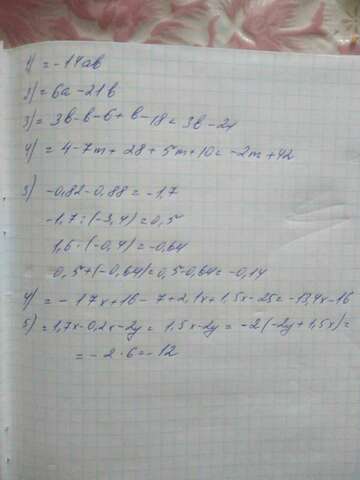 1) = -14ab
2) = 6a - 21b
3) = 3b - b - 6 + b - 18 = 3b - 24
4) = 4 - 7m + 28 + 5m + 10 = -2m + 42
3) -0,82 - 0,88 = -1,7
-1,7 : (-3,4) = 0,5
1,6 · (-0,4) = -0,64
0,5 + (-0,64) = 0,5 - 0,64 = -0,14
4) = -17x + 16 - 7 + 2,1x + 1,5x - 25 = -13,4x - 16
5) = 1,7x - 0,2x - 2y = 1,5x - 2y = -2(-2y + 1,5x) =
= -2 · 6 = -12